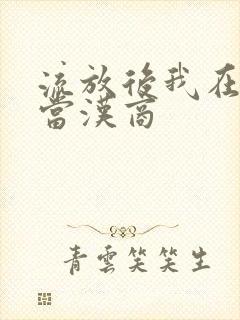 流放後我在
當漢商
青雲笑笑生